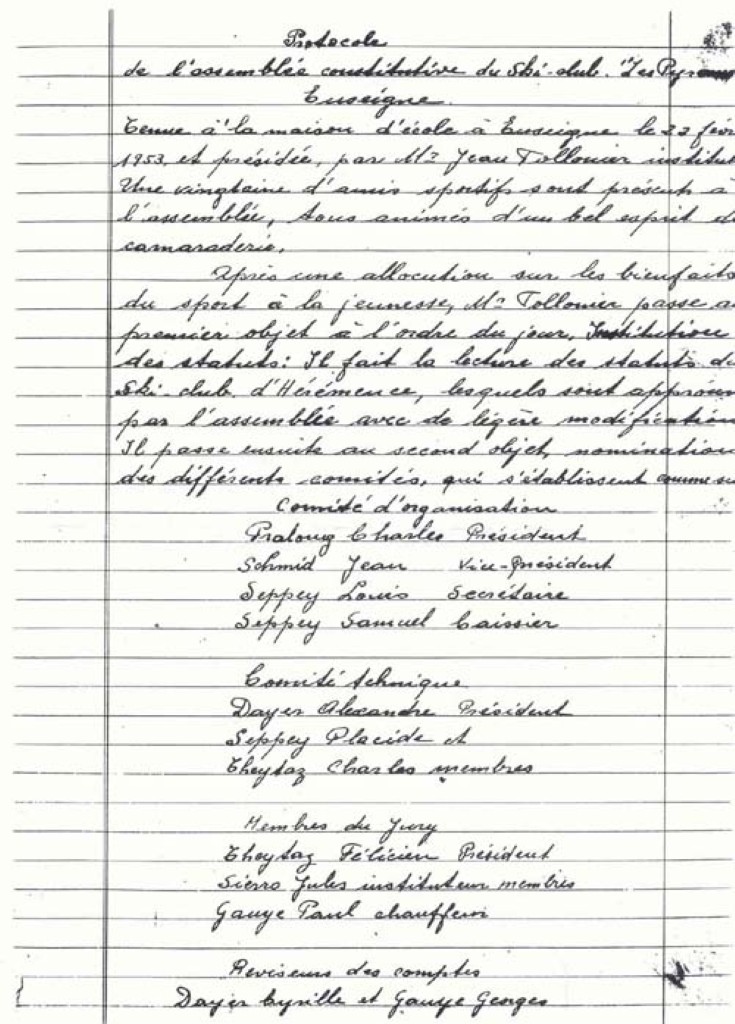 Protocole
de l'assemblée constitutive du Ski-club. "Les Pyram
Euseigne.
Tenue à la maison d'école à Euseigne le 22 févr
1953, et présidée, par Mr Jean Tollonier institut
Une vingtaine d'amis sportifs sont présents à
l'assemblée, tous animés d'un bel esprit de
camaraderie.
Après une allocution sur les bienfaits
du sport à la jeunesse, Mr Tollonier passe a
premier objet à l'ordre du jour, Institution
des statuts: Il fait la lecture des statuts du
Ski-club d'Hérémence, lesquels sont approuv
par l'assemblée avec de légère modification
Il passe ensuite au second objet, nomination
des différents comités, qui s'établissent comme su
Comité d'organisation
Pralong Charles Président
Schmid Jean Vice-Président
Seppey Louis Secrétaire
Seppey Samuel Caissier
Comité technique
Dayer Alexandre Président
Seppey Placide et
Theytaz Charles membres
Membres du Jury
Theytaz Félicien Président
Sierro Jules instituteur membres
Gauye Paul chauffeur
Reviseurs des comptes
Dayer Cyrille et Gauye Georges